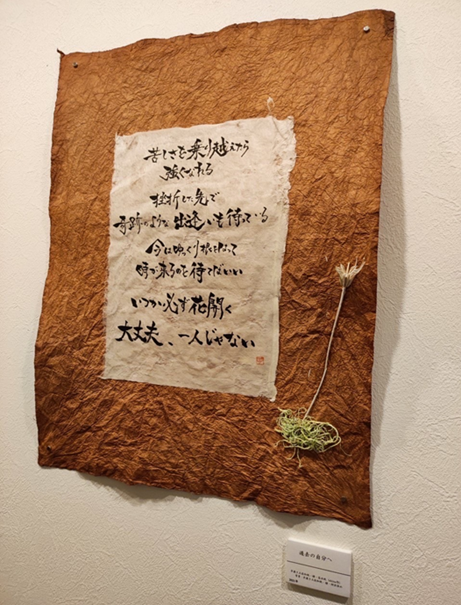 苦しさを乗り越えたら
強くなれる
挫折した先で
奇跡のような出逢いも待っている
今はゆっくり根をはって
時が来るのを待てばいい
いつか必ず花開く
大丈夫、一人じゃない
過去の自分へ